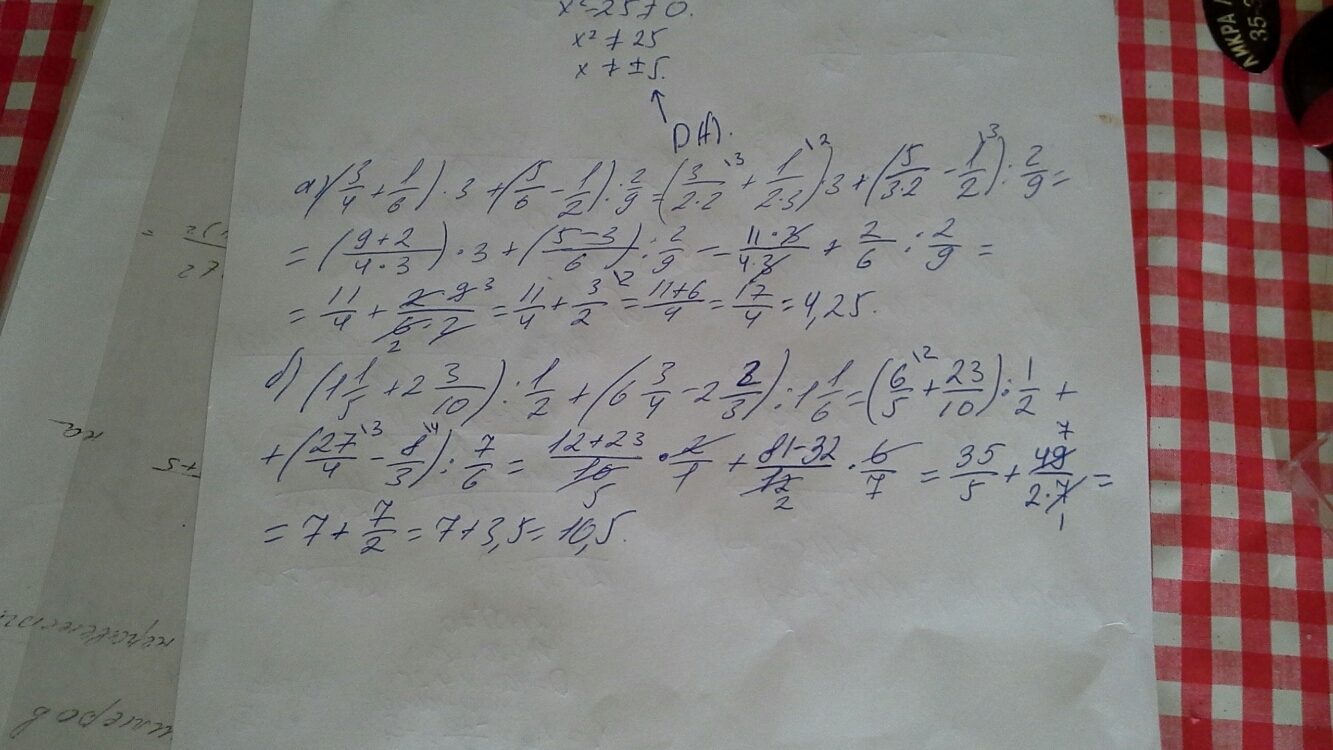 x²-25≠0.
x²≠25
x≠±5.
D(f).
а) (3/4+1/6)·3+(5/6-1/2):2/9=(3/2·2\3+1/2·3\2)·3+(5/3·2-1/2\3):2/9=
=(9+2/4·3)·3+(5-3/6):2/9=11·3/4·3+2/6:2/9=
=11/4+2·9 3/6·2 2=11/4+3/2\2=11+6/4=17/4=4,25.
б) (1 1/5+2 3/10):1/2+(6 3/4-2 2/3):1 1/6=(6/5\2+23/10):1/2+
+(27/4\3-8/3\4):7/6=12+23/10 5·2/1+81-32/12 2·6/7=35/5+49 7/2·7 1=
=7+7/2=7+3,5=10,5.
ЛИКРА
35-
на